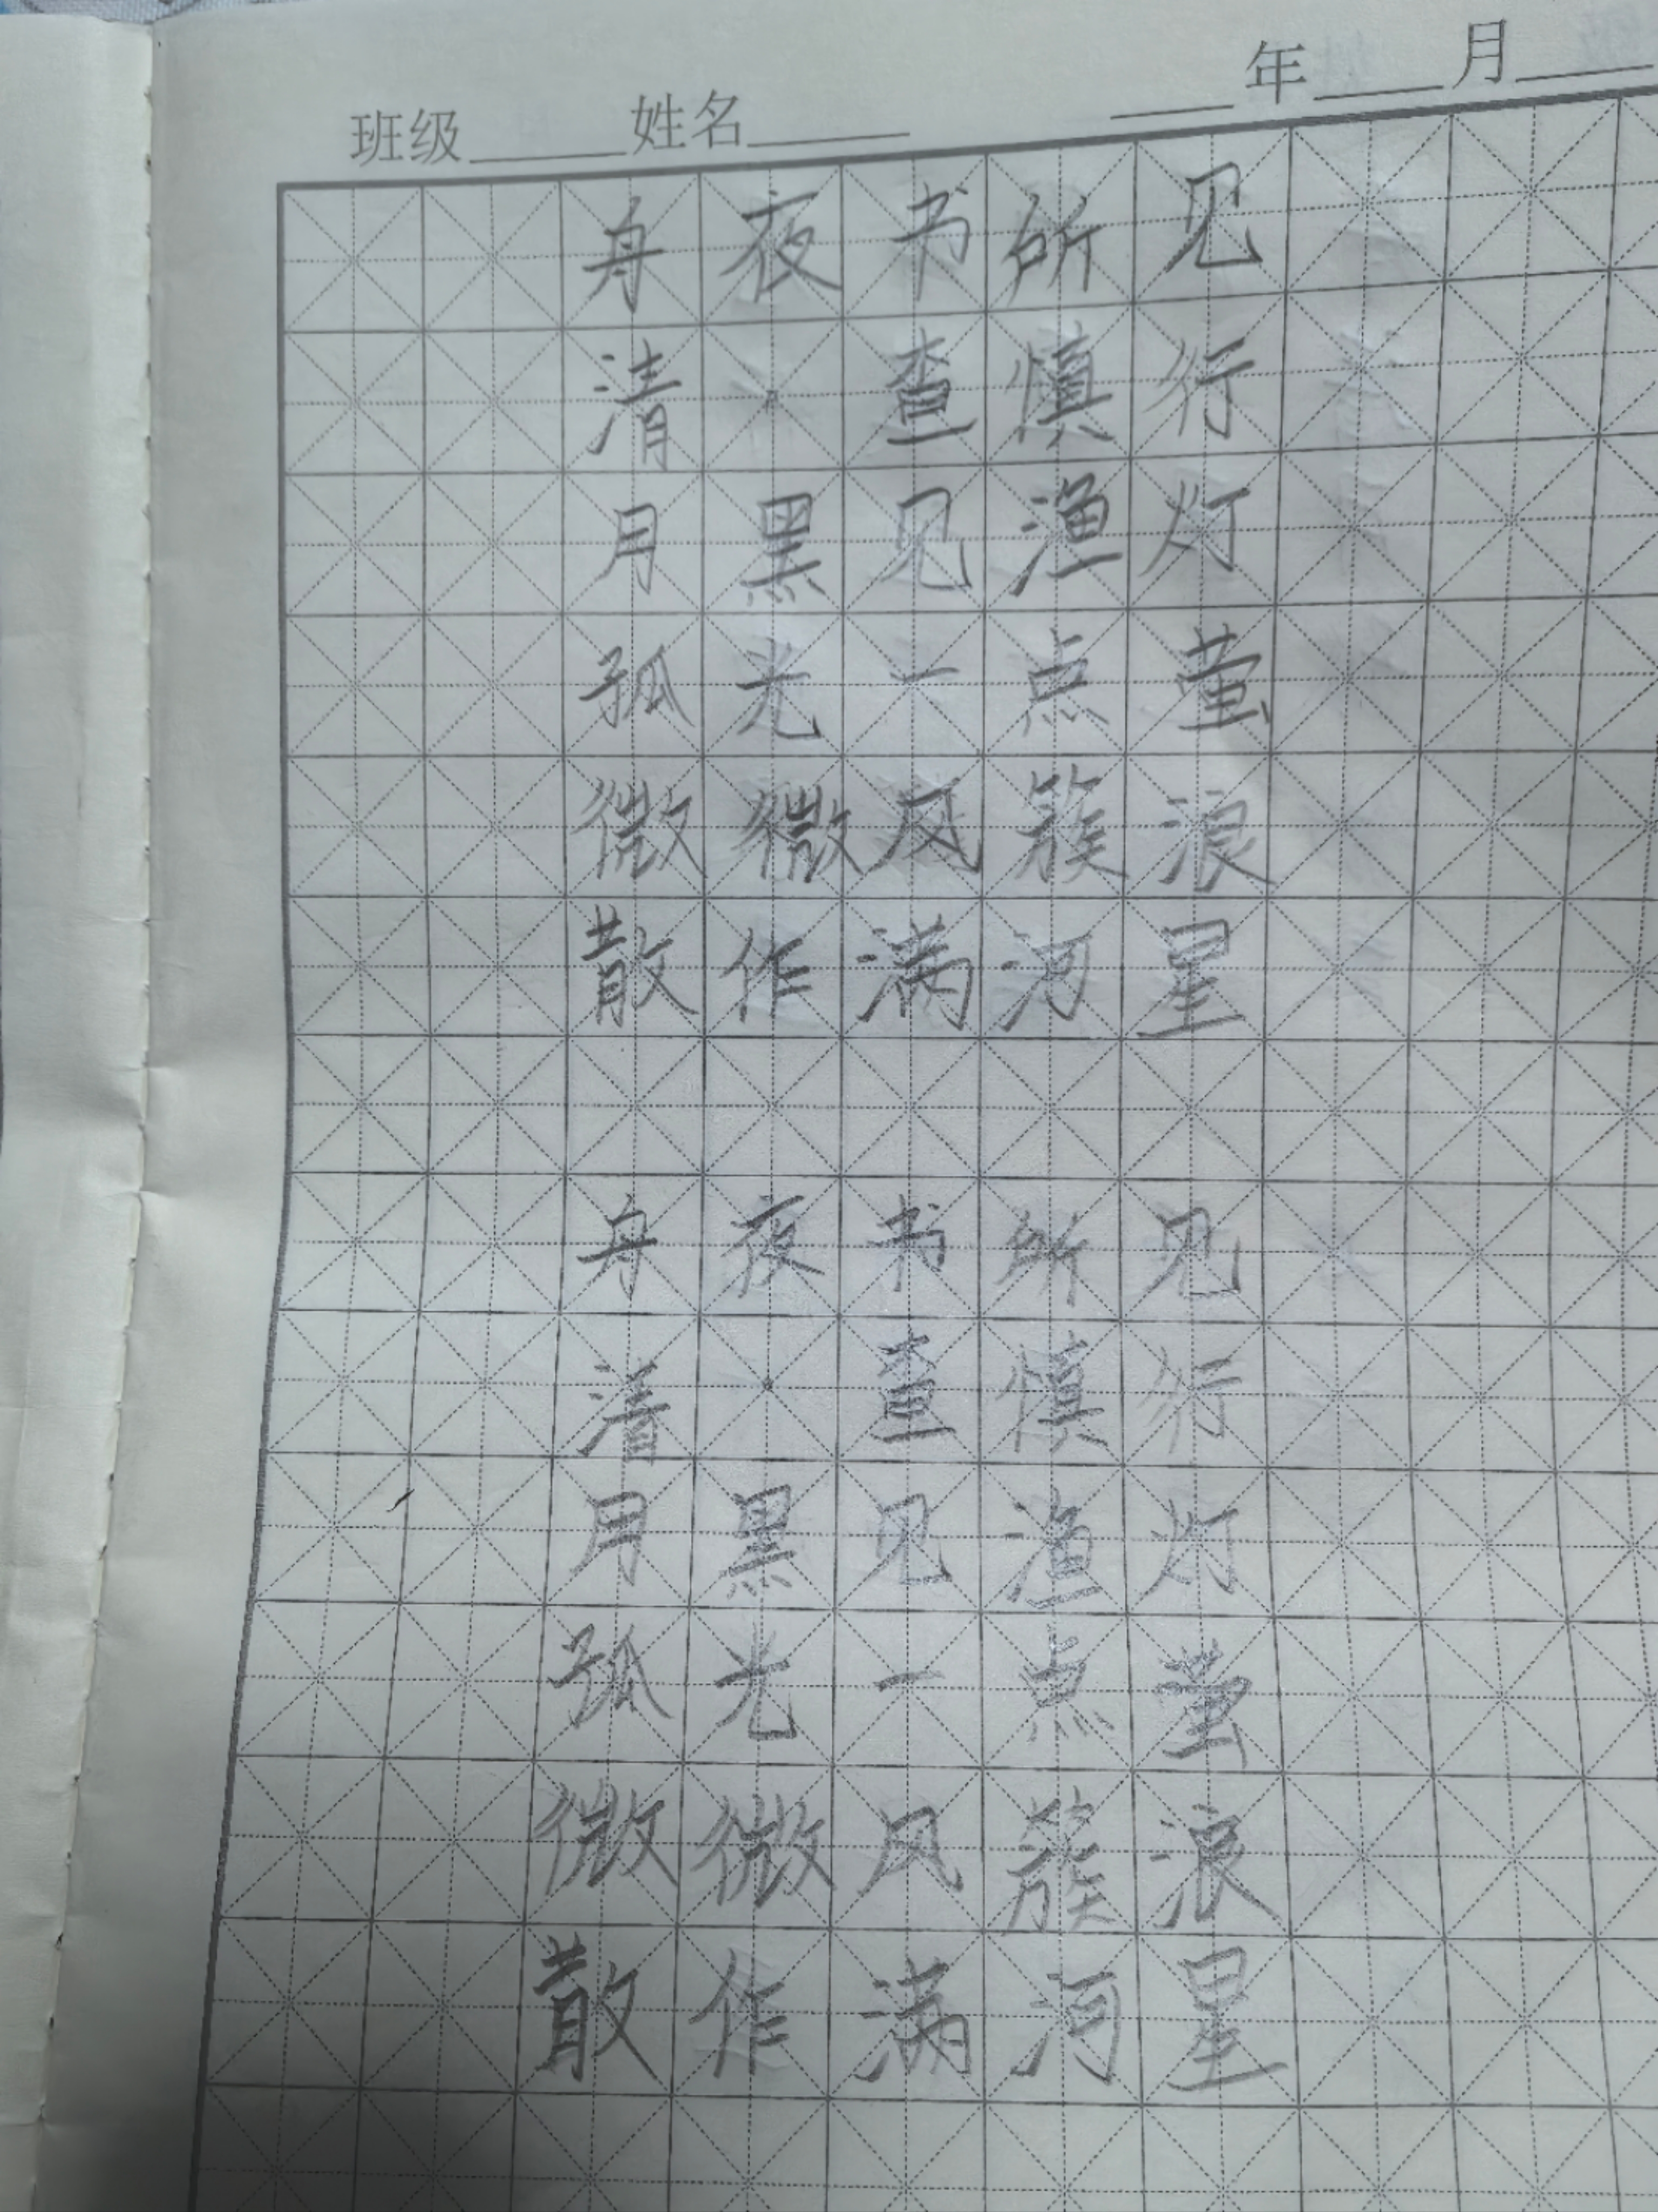 班级______姓名______ ______年______月______
舟夜书所见
清·查慎行
月黑见渔灯
孤光一点萤
微微风簇浪
散作满河星
舟夜书所见
清·查慎行
月黑见渔灯
孤光一点萤
微微风簇浪
散作满河星